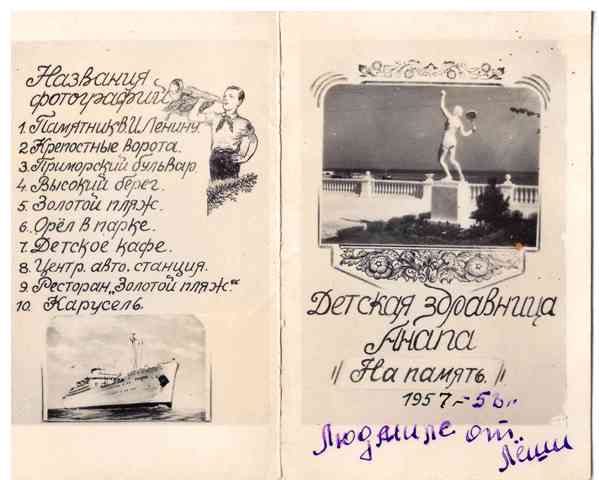 Названия
фотографий
1. Памятник В.И Ленину
2 Крепостные ворота.
3. Приморский бульвар
4. Высокий берег.
5. Золотой пляж.
6. Орёл в парке.
7. Детское кафе.
8. Центр. авто. станция.
9. Ресторан „Золотой пляж"
10. Карусель.
Детская здравница
Анапа
"На память."
1957.-58 г.
Людмиле от
Лёши